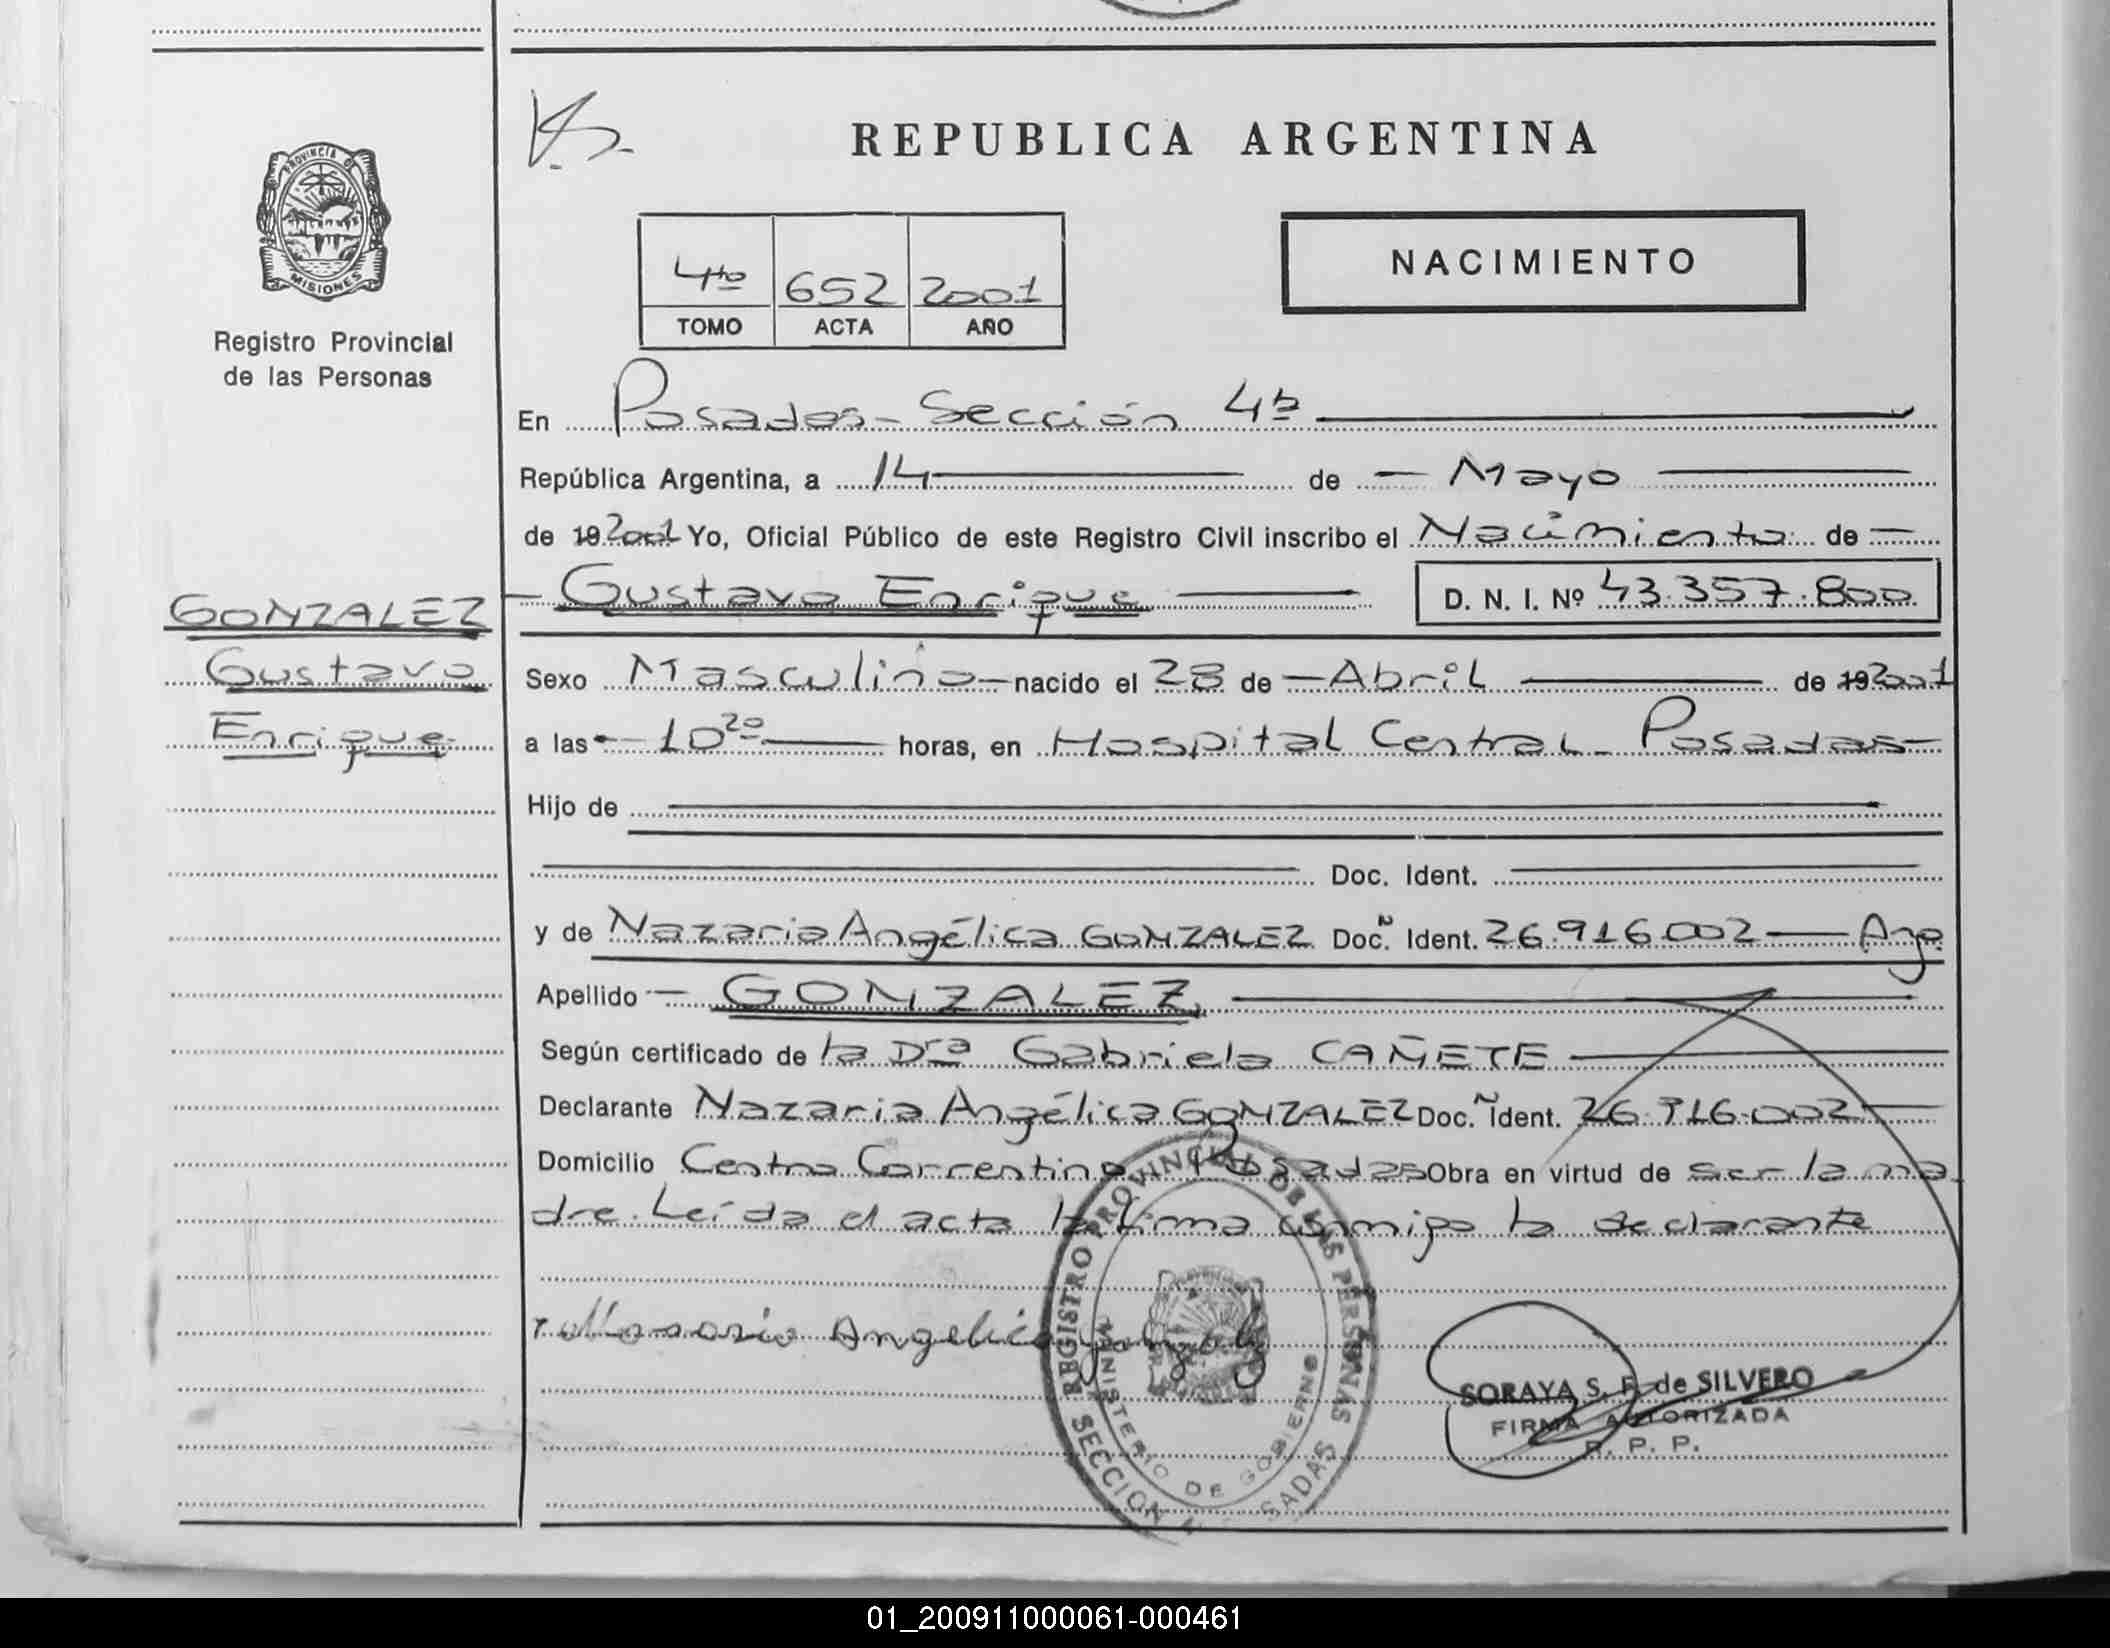 REPUBLICA ARGENTINA
PROVINCIA DE
MISIONES
Registro Provincial
de las Personas
4to 652 2001
TOMO ACTA AÑO
NACIMIENTO
En Posadas - Sección 4ta
República Argentina, a 14 de - Mayo
de 19 2001 Yo, Oficial Público de este Registro Civil inscribo el Nacimiento de -
GONZALEZ
Gustavo
Enrique
- Gustavo Enrique D. N. I. Nº 43.357.800
Sexo Masculino - nacido el 28 de - Abril de 19 2001
a las - 10 20 horas, en Hospital Central - Posadas -
Hijo de
Doc. Ident.
y de Nazaria Angélica GONZALEZ Doc. Ident. 26.916.002 - Arg
Apellido - GONZALEZ
Según certificado de la Dra Gabriela CAÑETE
Declarante Nazaria Angélica GONZALEZ Doc. Ident. 26.916.002 -
Domicilio Centro Correntino Posadas Obra en virtud de ser la ma
dre. Leída el acta la firma conmigo la declarante
Angelica
REGISTRO PROVINCIAL DE LAS PERSONAS
MINISTERIO DE GOBIERNO
SECCION
SORAYA S. F. de SILVERO
FIRMA AUTORIZADA
R. P. P.
01_200911000061-000461